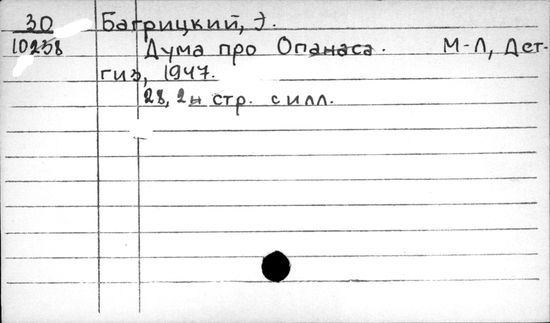 30 Багрицкий, Э.
10238 Дума про Опанаса. М-Л, Дет-
гиз, 1947.
28, 2н стр. с илл.